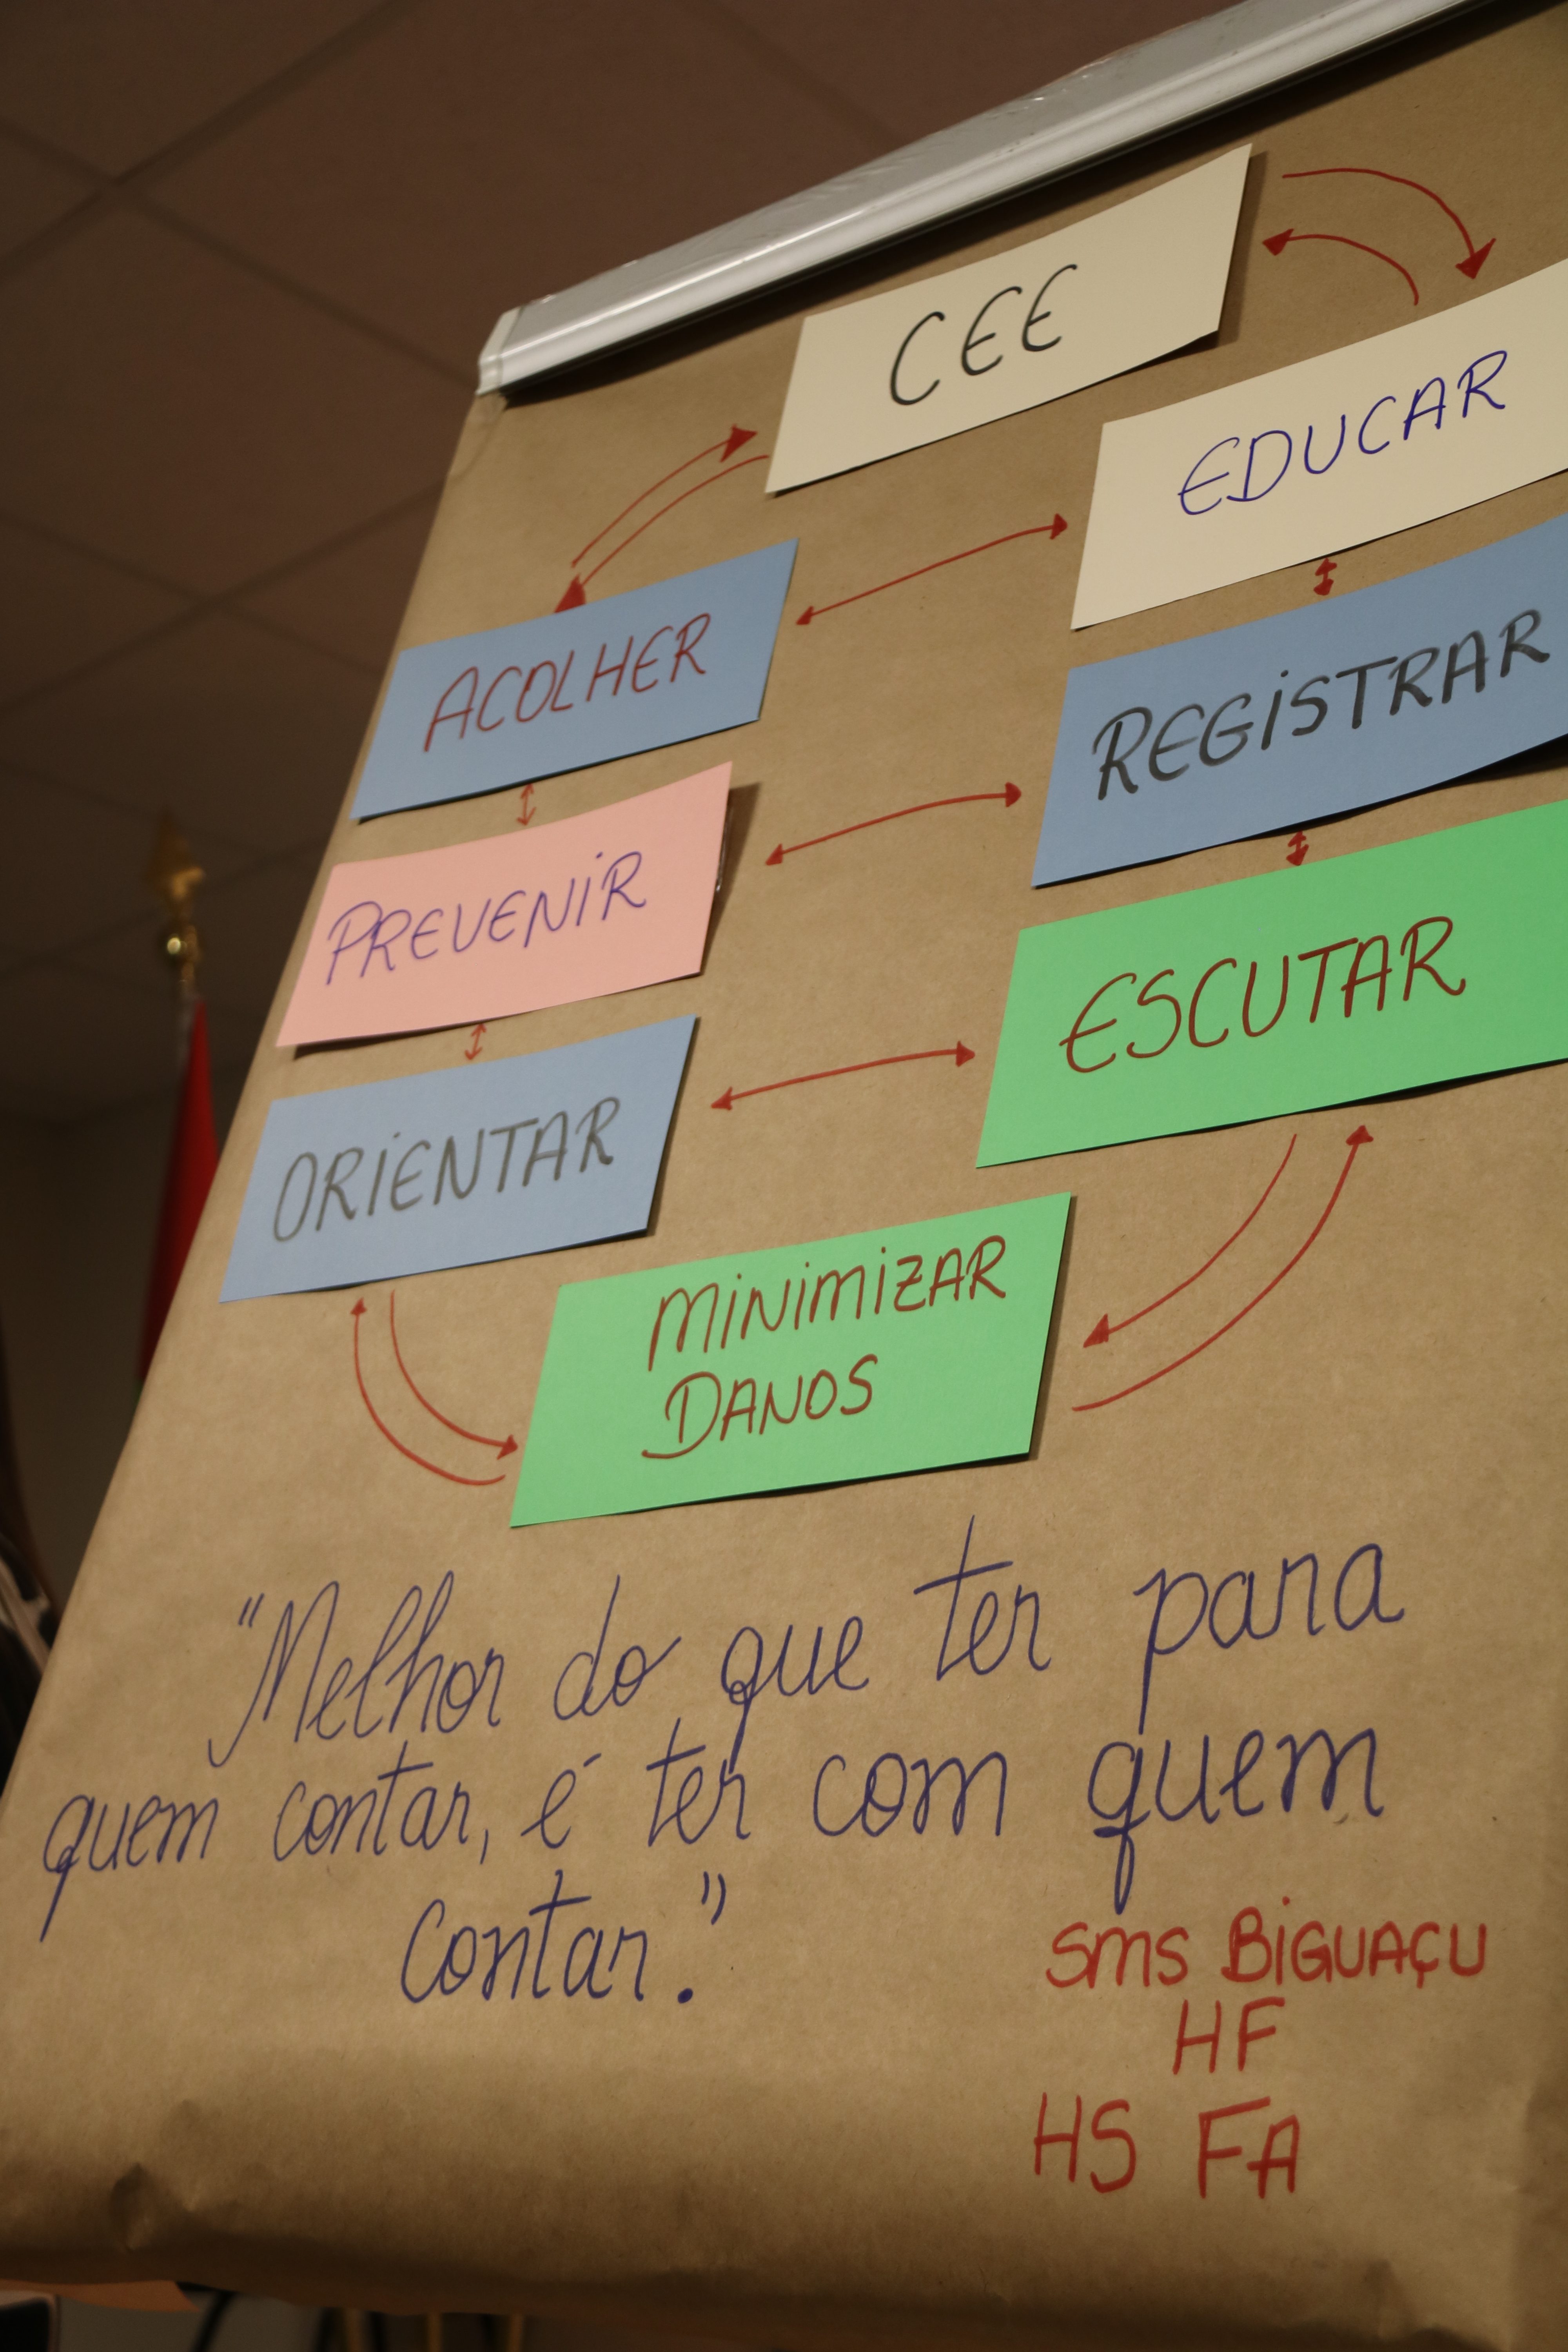 CEE
EDUCAR
ACOLHER
REGISTRAR
PREVENIR
ESCUTAR
ORIENTAR
MINIMIZAR
DANOS
"Melhor do que ter para
quem contar, é ter com quem
contar."
SMS BIGUAÇU
HF
HS FA